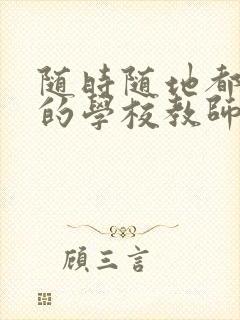 随時随地都
的學校教師
顧三言